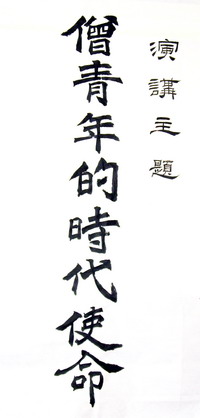 演講主題
僧青年的時代使命